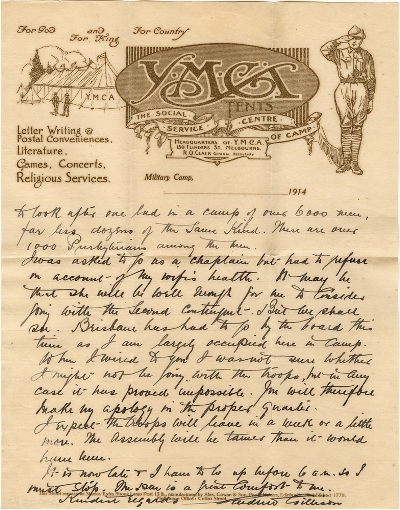 For God and For King For Country
Y.M.C.A.
TENTS
Y M C A
THE SOCIAL SERVICE CENTRE OF CAMP.
HEADQUARTERS OF Y.M.C.A.
FLINDERS ST. MELBOURNE.
Letter Writing &
Postal Conveniences.
Literature.
Games, Concerts,
Religious Services.
Military Camp,
1914
to look after one lad in a camp of over 6000 men,
far less, dozens of the same kind. There are over
1000 Presbyterians among the men.
I was asked to go as a chaplain but had to refuse
on account of my wife's health. It may be
that she will be well enough for me to consider
going with the Second Contingent. But we shall
see. Brisbane has had to go by the board this
time as I am largely occupied here in camp.
When I wired to you I was not sure whether
I might not be going with the troops, but in any
case it has proved impossible. You will therefore
make my apology in the proper quarter.
I expect the troops will leave in a week or a little
more. The Assembly will be tamer than it would
have been.
It is now late & I have to be up before 6 a.m. so I
must stop. is a great comfort to me.
Kindest regards